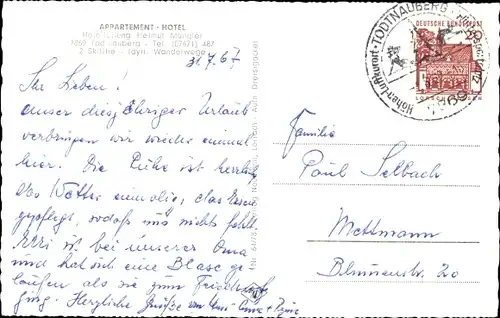 APPARTEMENT - HOTEL
7869 Todtnauberg - Tel. (07671) 487
2 Skilifte - Idyll. Wanderwege
31.7.67
Ihr Lieben!
Unser diesjähriger Urlaub
verbringen wir wieder einmal
hier. Die Ruhe ist herrlich
das Wetter prima, das Essen
gepflegt, sodaß uns nichts fehlt.
ist bei unserer Oma
und hat sich eine Blase ge-
laufen als sie zum
ging. Herzliche Grüße von
TODTNAUBERG
Höhen-Luftkurort
7869
DEUTSCHE BUNDESPOST
Familie
Paul Selbach
Mettmann
Blumenstr. 20